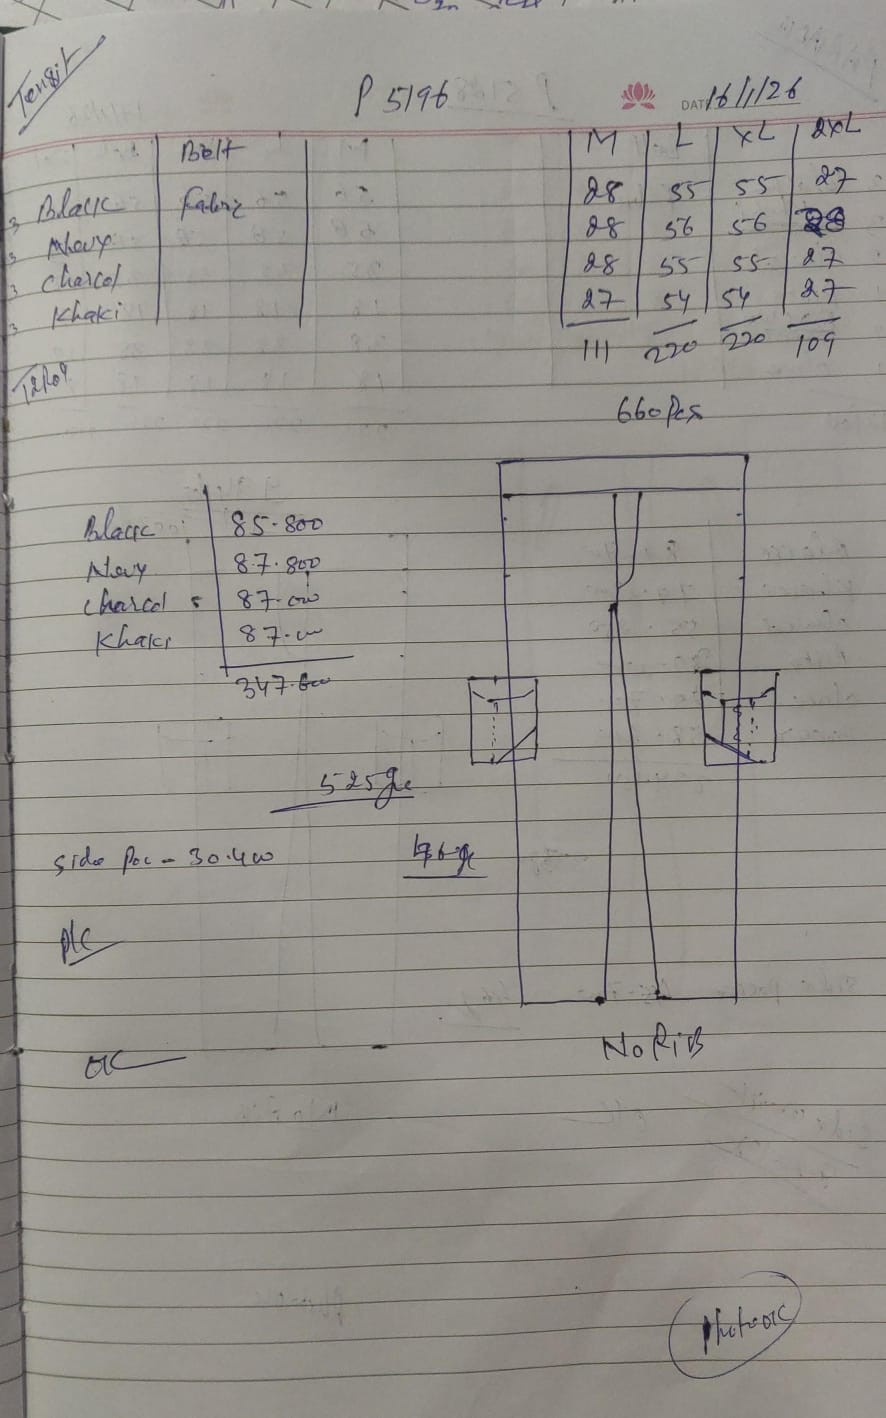 P 5196 DATE 16/1/26
Belt M L XL 2XL
3 Black Fabric 28 55 55 27
3 Navy 28 56 56 28
3 Charcol 28 55 55 27
3 Khaki 27 54 54 27
111 220 220 109
660 Pcs
Black : 85.800
Navy 87.800
Charcol 87.000
Khaki 87.00
347.600
525 g
Side Poc - 30.400
OK
No RiB
Photo OK